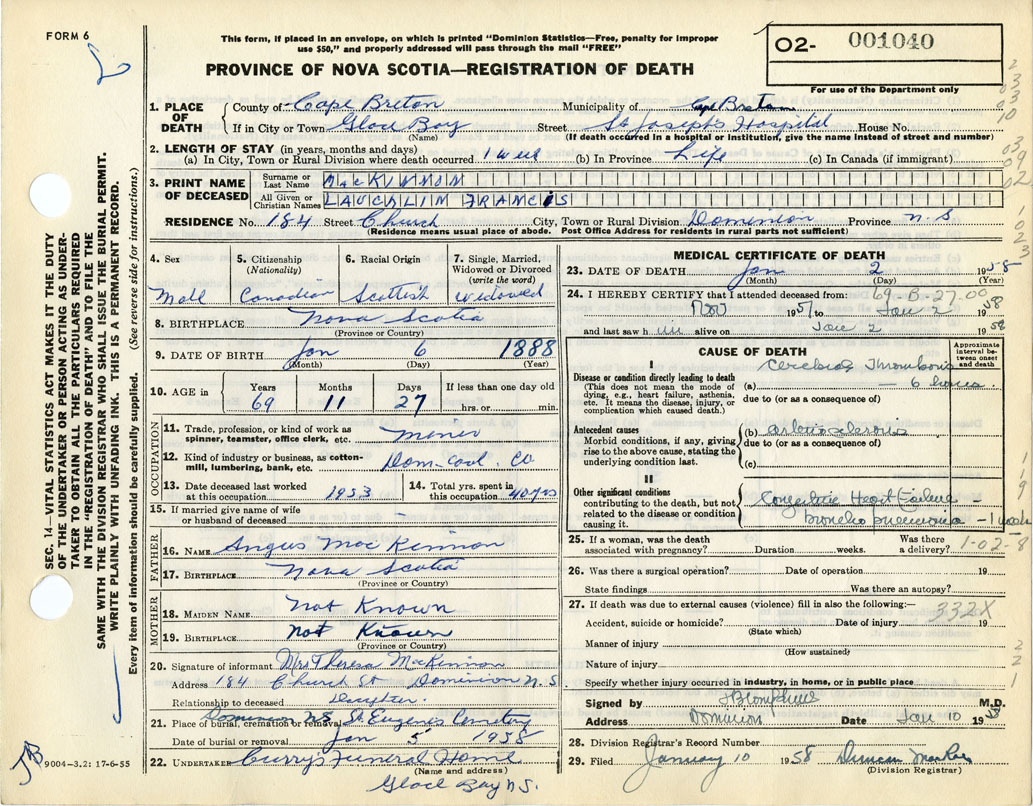 FORM 6
This form, if placed in an envelope, on which is printed "Dominion Statistics—Free, penalty for improper
use $50," and properly addressed will pass through the mail "FREE"
PROVINCE OF NOVA SCOTIA—REGISTRATION OF DEATH
02- 001040
For use of the Department only
SEC. 14—VITAL STATISTICS ACT MAKES IT THE DUTY
OF THE UNDERTAKER OR PERSON ACTING AS UNDER-
TAKER TO OBTAIN ALL THE PARTICULARS REQUIRED
IN THE "REGISTRATION OF DEATH" AND TO FILE THE
SAME WITH THE DIVISION REGISTRAR WHO SHALL ISSUE THE BURIAL PERMIT.
WRITE PLAINLY WITH UNFADING INK. THIS IS A PERMANENT RECORD.
Every item of information should be carefully supplied. (See reverse side for instructions.)
1. PLACE OF DEATH
County of Cape Breton Municipality of Cape Breton
If in City or Town Glace Bay Street St Joseph's Hospital House No.
(Name) (If death occurred in a hospital or institution, give the name instead of street and number)
2. LENGTH OF STAY (in years, months and days)
(a) In City, Town or Rural Division where death occurred 1 week (b) In Province Life (c) In Canada (if immigrant)
3. PRINT NAME OF DECEASED
Surname or Last Name MacKINNON
All Given or Christian Names LAUCHLIN FRANCIS
RESIDENCE No. 184 Street Church City, Town or Rural Division Dominion Province N.S
(Residence means usual place of abode. Post Office Address for residents in rural parts not sufficient)
4. Sex 5. Citizenship (Nationality) 6. Racial Origin 7. Single, Married, Widowed or Divorced (write the word)
Male Canadian Scottish Widowed
8. BIRTHPLACE Nova Scotia
(Province or Country)
9. DATE OF BIRTH Jan 6 1888
(Month) (Day) (Year)
10. AGE in Years Months Days If less than one day old
69 11 27 hrs. or min.
OCCUPATION
11. Trade, profession, or kind of work as spinner, teamster, office clerk, etc. miner
12. Kind of industry or business, as cotton-mill, lumbering, bank, etc. Dom-Coal. Co
13. Date deceased last worked at this occupation 1953 14. Total yrs. spent in this occupation 40 yrs
15. If married give name of wife or husband of deceased —
FATHER
16. NAME Angus MacKinnon
17. BIRTHPLACE Nova Scotia
(Province or Country)
MOTHER
18. MAIDEN NAME Not Known
19. BIRTHPLACE Not Known
(Province or Country)
20. Signature of informant Mrs Theresa MacKinnon
Address 184 Church St Dominion N.S
Relationship to deceased Daughter
21. Place of burial, cremation or removal Dominion N.S St. Eugene's Cemetery
Date of burial or removal Jan 5 1958
22. UNDERTAKER Curry's Funeral Home
(Name and address)
Glace Bay N.S.
9004-3.2: 17-6-55
MEDICAL CERTIFICATE OF DEATH
23. DATE OF DEATH Jan 2 1958
(Month) (Day) (Year)
69-B-27-00
24. I HEREBY CERTIFY that I attended deceased from:
Nov 1957 to Jan 2 1958
and last saw him alive on Jan 2 1958
CAUSE OF DEATH
Approximate interval between onset and death
I
Disease or condition directly leading to death
(This does not mean the mode of dying, e.g., heart failure, asthenia, etc. It means the disease, injury, or complication which caused death.)
(a) Cerebral Thrombosis — 6 hours.
due to (or as a consequence of)
Antecedent causes
Morbid conditions, if any, giving rise to the above cause, stating the underlying condition last.
(b) arteriosclerosis
due to (or as a consequence of)
(c)
II
Other significant conditions
contributing to the death, but not related to the disease or condition causing it.
Congestive Heart Failure —
Broncho pneumonia — 1 week
25. If a woman, was the death associated with pregnancy? Duration weeks. Was there a delivery?
1-02-8
26. Was there a surgical operation? Date of operation 19
State findings Was there an autopsy?
27. If death was due to external causes (violence) fill in also the following:—
332X
Accident, suicide or homicide? Date of injury 19
(State which)
Manner of injury
(How sustained)
Nature of injury
Specify whether injury occurred in industry, in home, or in public place
Signed by M.D.
Address Dominion Date Jan 10 1958
28. Division Registrar's Record Number
29. Filed January 10 1958 Duncan
(Division Registrar)